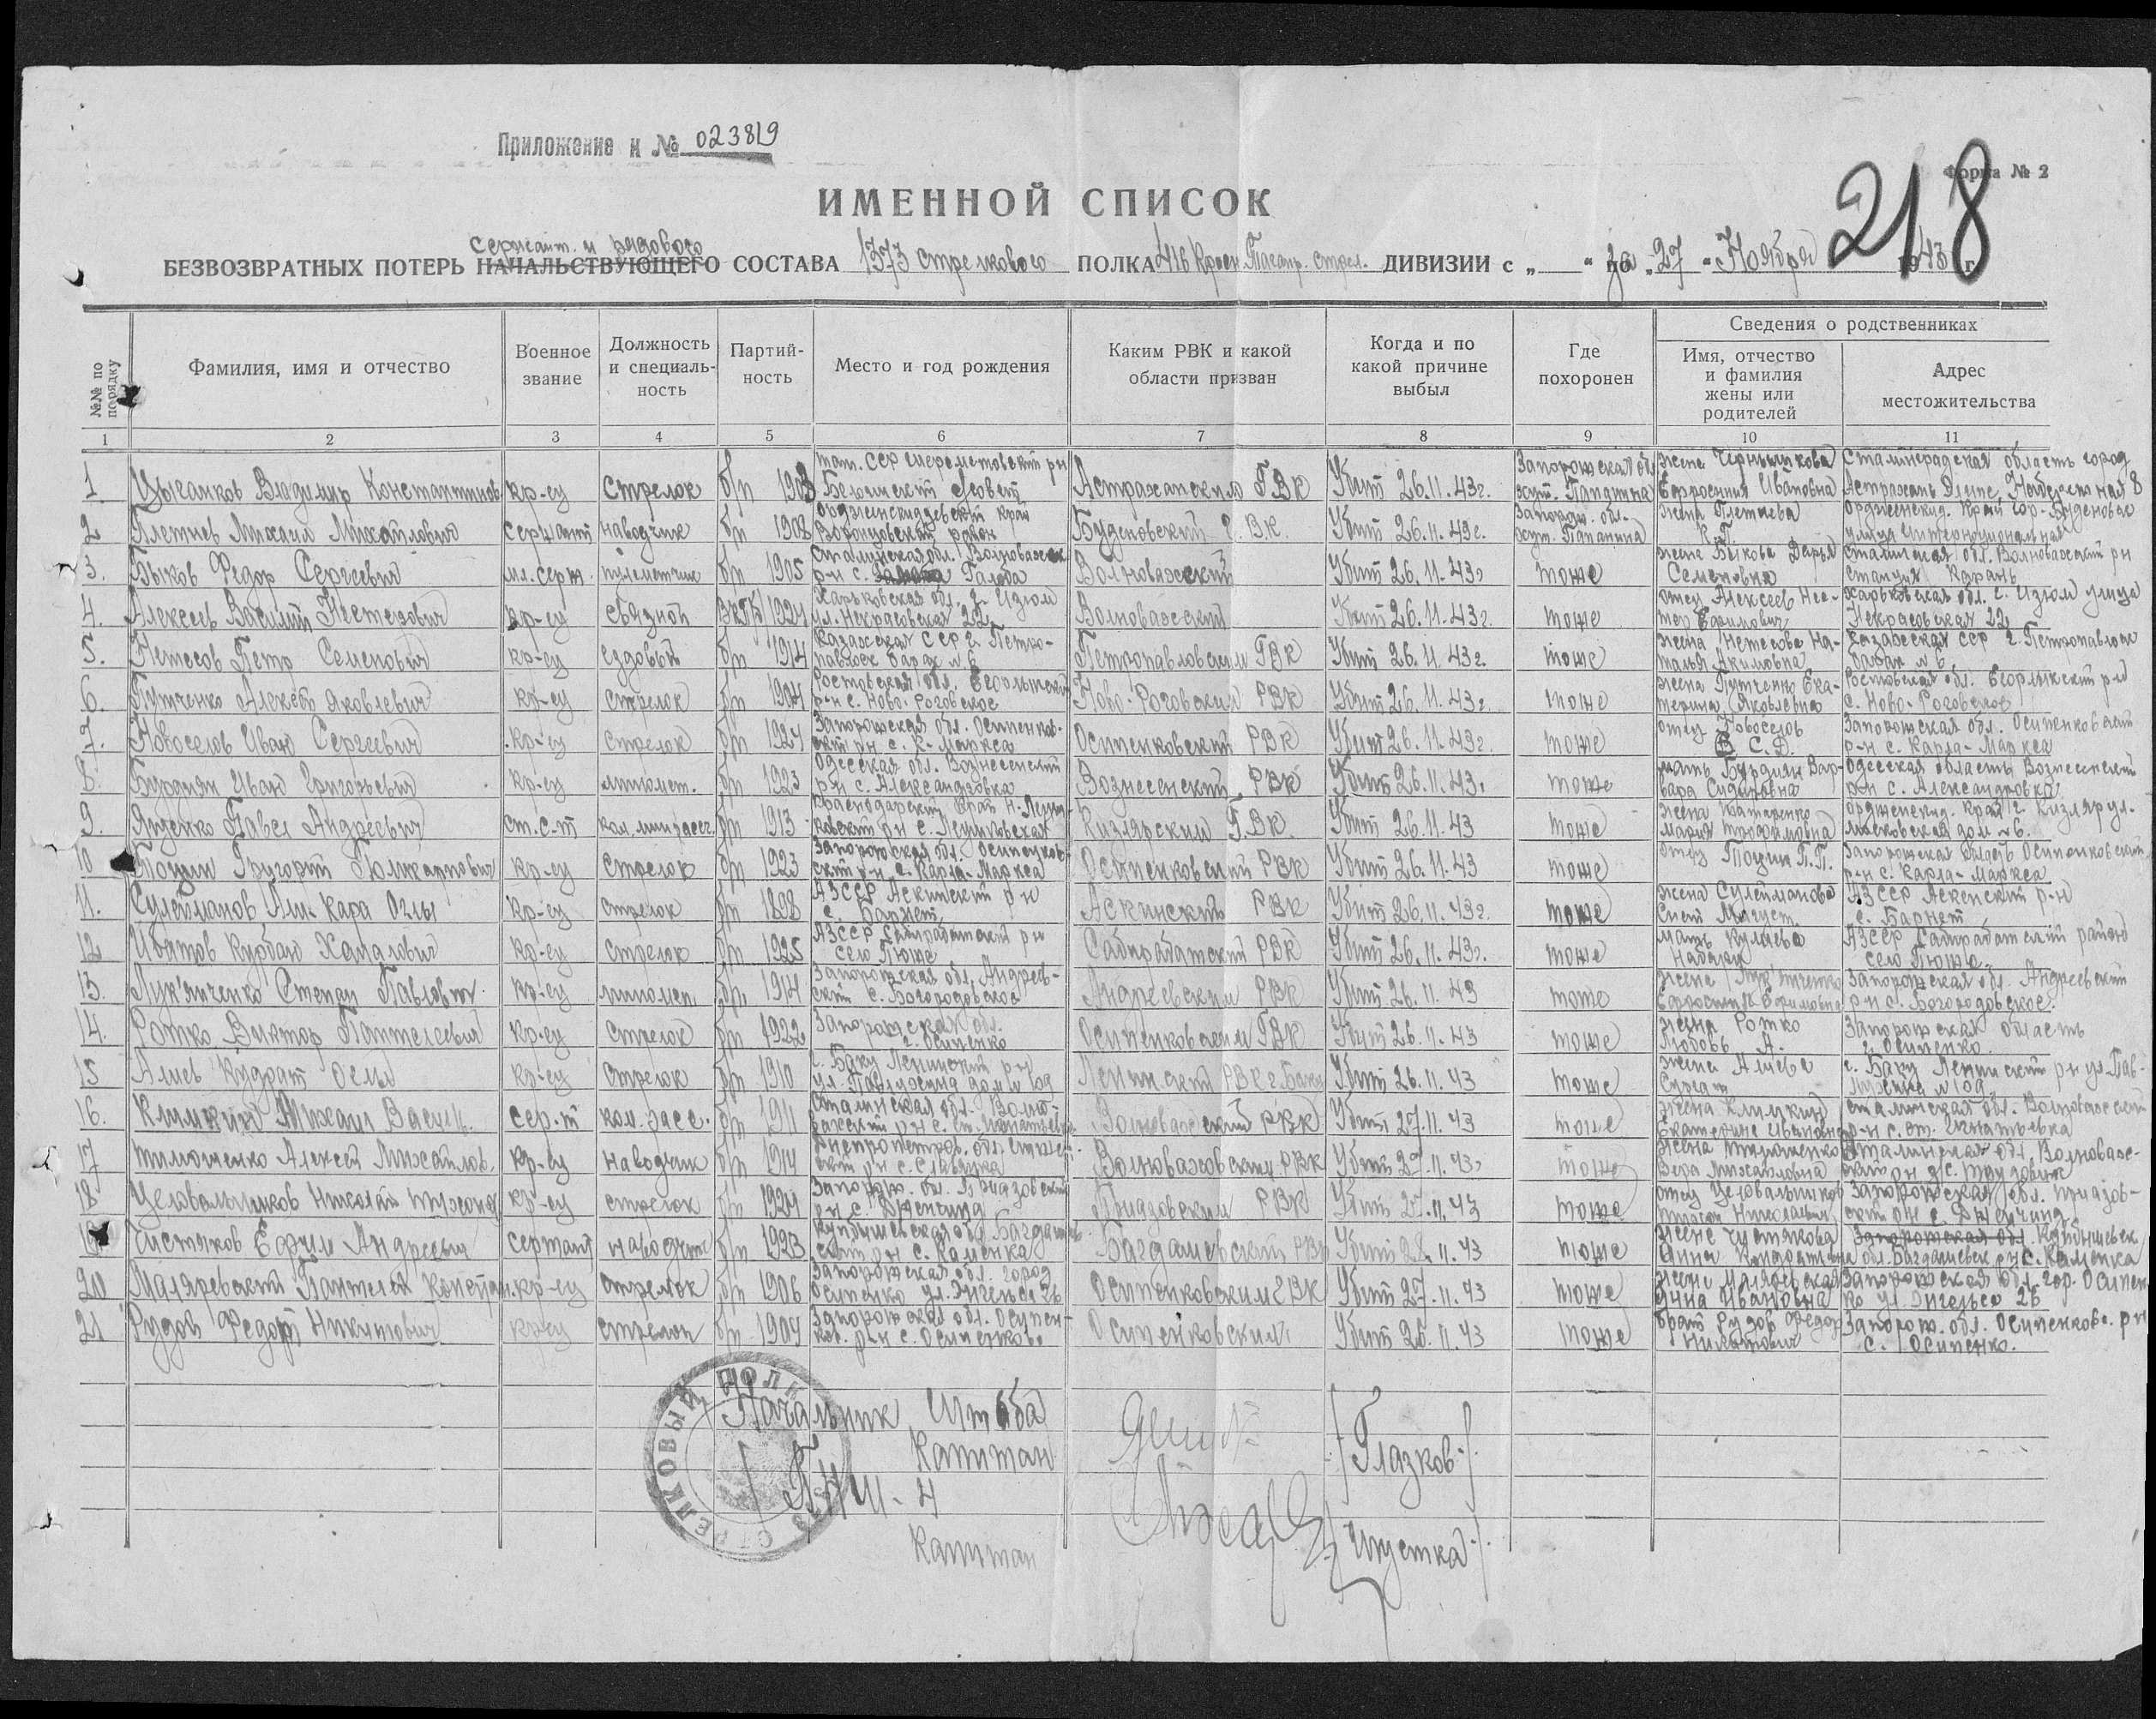 Приложение к № 023819
218
Форма № 2
ИМЕННОЙ СПИСОК
сержант. и рядового
БЕЗВОЗВРАТНЫХ ПОТЕРЬ НАЧАЛЬСТВУЮЩЕГО СОСТАВА 1373 стрелкового ПОЛКА 416 Красн. Таганр. стрел. ДИВИЗИИ с „ “ по за „27“ Ноября 1943 г.
№№ по порядку
Фамилия, имя и отчество
Военное звание
Должность и специальность
Партийность
Место и год рождения
Каким РВК и какой области призван
Когда и по какой причине выбыл
Где похоронен
Сведения о родственниках
Имя, отчество и фамилия жены или родителей
Адрес местожительства
1 2 3 4 5 6 7 8 9 10 11
1 Цыганков Владимир Константинов. кр-ец стрелок б/п 1903 Астраханским ГВК Убит 26.11.43г. Запорожская обл. хут. Папанина жена Черныткова Ефросиния Ивановна Сталинградская область город Астрахань
2 Плетнев Михаил Михайлович сержант наводчик б/п 1908 Орджоникидзевский край Воронцовский район Буденовский Г.В.К. Убит 26.11.43г. Запорож. обл. хут. Папанина жена Плетнева К.П. Орджоникид. край гор. Буденовск улица Интернациональная
3. Быков Федор Сергеевич мл. серж. пулеметчик б/п 1905 Сталинская обл. Волновахск р-н с. Волновахский Убит 26.11.43г тоже жена Быкова Дарья Семеновна Сталинская обл. Волновахский р-н станция Карань
4. Алексеев Василий Нестерович кр-ец связной 1924 Харьковская обл. г. Изюм ул. Некрасовская 22 Волновахский Убит 26.11.43г. тоже отец Алексеев Нестер Ефимович Харьковская обл. г. Изюм улица Некрасовская 22
5. Нетесов Петр Семенович кр-ец ездовый б/п 1914 Казахская ССР г. Петропавловск барак №6 Петропавловским ГВК Убит 26.11.43г. тоже жена Нетесова Наталья Акимовна Казахская ССР г. Петропавловск барак №6
6. Путченко Алексей Яковлевич кр-ец стрелок б/п Ростовская обл. р-н с. Ново-Роговское Ново-Роговским РВК Убит 26.11.43г тоже жена Путченко Екатерина Яковлевна Ростовская обл. р-н с. Ново-Роговское
7. Новоселов Иван Сергеевич кр-ец стрелок б/п 1924 Запорожская обл. Осипенковский р-н с. К-Маркса Осипенковский РВК Убит 26.11.43г. тоже отец Новоселов С.Д. Запорожская обл. Осипенковский р-н с. Карла-Маркса
8. Бурдиян Иван Григорьевич кр-ец миномет. б/п 1923 Одесская обл. Вознесенский р-н с. Александровка Вознесенский РВК Убит 26.11.43г тоже мать Бурдиян Варвара Сидоровна Одесская область Вознесенский р-н с. Александровка
9. Яценко Павел Андреевич ст. с-т ком. мин. расч. б/п 1913 Краснодарский край Кизлярским ГВК Убит 26.11.43 тоже жена Мария Трофимовна Орджоникид. край г. Кизляр ул. Московская дом №6.
10 Тоцин Григорий Поликарпович кр-ец стрелок б/п 1923 Запорожская обл. Осипенковский р-н с. Карла-Маркса Осипенковский РВК Убит 26.11.43 тоже отец Тоцин П.П. Запорожская область Осипенковский р-н с. Карла-Маркса
11. Сулейманов Али-Кара Оглы кр-ец стрелок б/п АЗССР р-н с. Барнет РВК Убит 26.11.43г. тоже жена Сулейманова АЗССР р-н с. Барнет
12 Курбан Хамалович кр-ец стрелок б/п 1925 АЗССР Сабирабатский р-н село Сабирабатский РВК Убит 26.11.43г. тоже мать АЗССР Сабирабатский район село
13. Лук'янченко Степан Павлович кр-ец миномет. б/п 1914 Запорожская обл. Андреевский с. Богородовское Андреевским РВК Убит 26.11.43 тоже жена Лук'янченко Ефросинья Ефимовна Запорожская обл. Андреевский р-н с. Богородовское
14. Ротко Виктор Пантелеевич кр-ец стрелок б/п 1922 Запорожская обл. г. Осипенко Осипенковским ГВК Убит 26.11.43 тоже жена Ротко Любовь А. Запорожская область г. Осипенко
15 Алиев Кудрат Оглы кр-ец стрелок б/п 1910 г. Баку Ленинский р-н Ленинский РВК г. Баку Убит 26.11.43 тоже жена Алиева г. Баку Ленинский р-н
16. Климкин Михаил Василь. сер-т ком. расс. б/п 1911 Сталинская обл. Волновахский р-н с. ст. Игнатьевка Волновахский РВК Убит 27.11.43 тоже жена Климкин Екатерина Ивановна Сталинская обл. Волновахский р-н с. ст. Игнатьевка
17 Тимошенко Алексей Михайлов. кр-ец наводчик б/п 1914 Днепропетров. обл. р-н с. Славянка Волновахским РВК Убит 27.11.43г тоже жена Тимошенко Вера Михайловна Сталинская обл. Волновахский р-н
18 Целовальников Николай Тихонов кр-ец стрелок б/п 1924 Запорож. обл. Приазовский р-н с. Приазовским РВК Убит 27.11.43 тоже отец Целовальников Тихон Николаевич Запорожская обл. Приазовский р-н с.
19 Чистяков Ефим Андреевич сержант наводчик б/п 1923 Куйбышевская обл. р-н с. Каменка РВК Убит 28.11.43 тоже жена Чистякова Анна Запорожская обл. Куйбышевск обл. р-н с. Каменка
20 Маляревский Пантелей Констан. кр-ец стрелок б/п 1906 Запорожская обл. город Осипенко ул. Энгельса 26 Осипенковским ГВК Убит 27.11.43 тоже жена Маляревская Анна Ивановна Запорожская обл. гор. Осипенко ул. Энгельса 26
21 Рудов Федор Никитович кр-ец стрелок б/п 1904 Запорожская обл. Осипенков. р-н с. Осипенково Осипенковским Убит 26.11.43 тоже брат Рудов Федор Никитович Запорож. обл. Осипенковс. р-н с. Осипенко.
СТРЕЛКОВЫЙ ПОЛК
Начальник Штаба
Капитан /Глазков/
ПНШ-4
Капитан /Шустка/